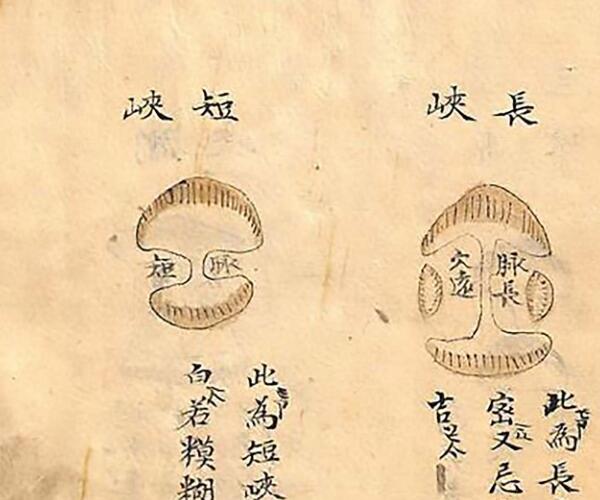 長峽
脈長
穴遠
此為長
密又忌
吉
短峽
脈
短
此為短峽
白若糢糊